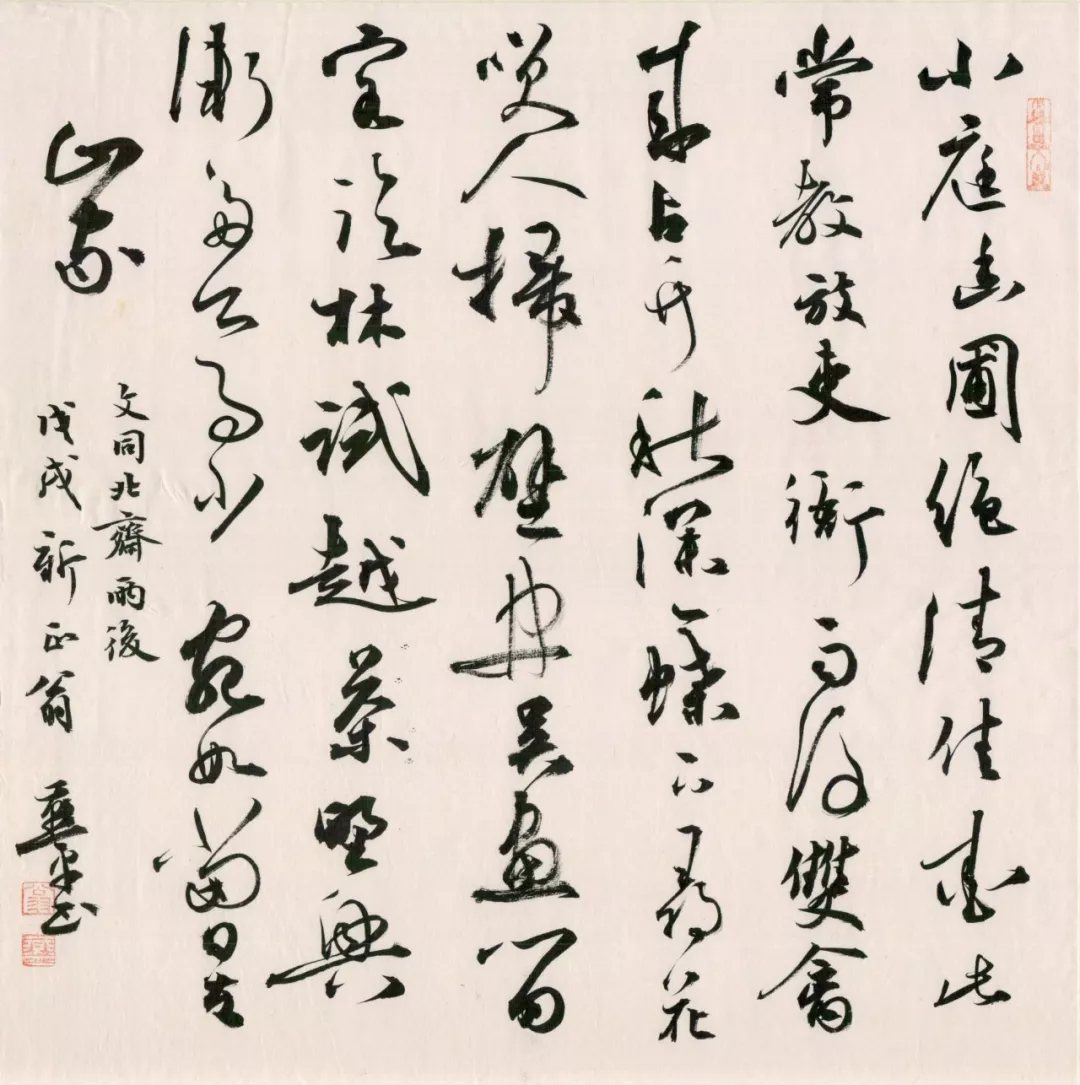 小庭幽圃絕清佳愛此
常教放吏衙雨後雙禽
來占竹秋深一蝶下尋花
喚人掃壁開吳畫留
客臨軒試越茶野興
漸多公事少宛如當日在
山家
文同北齋雨後
戊戌新正翁